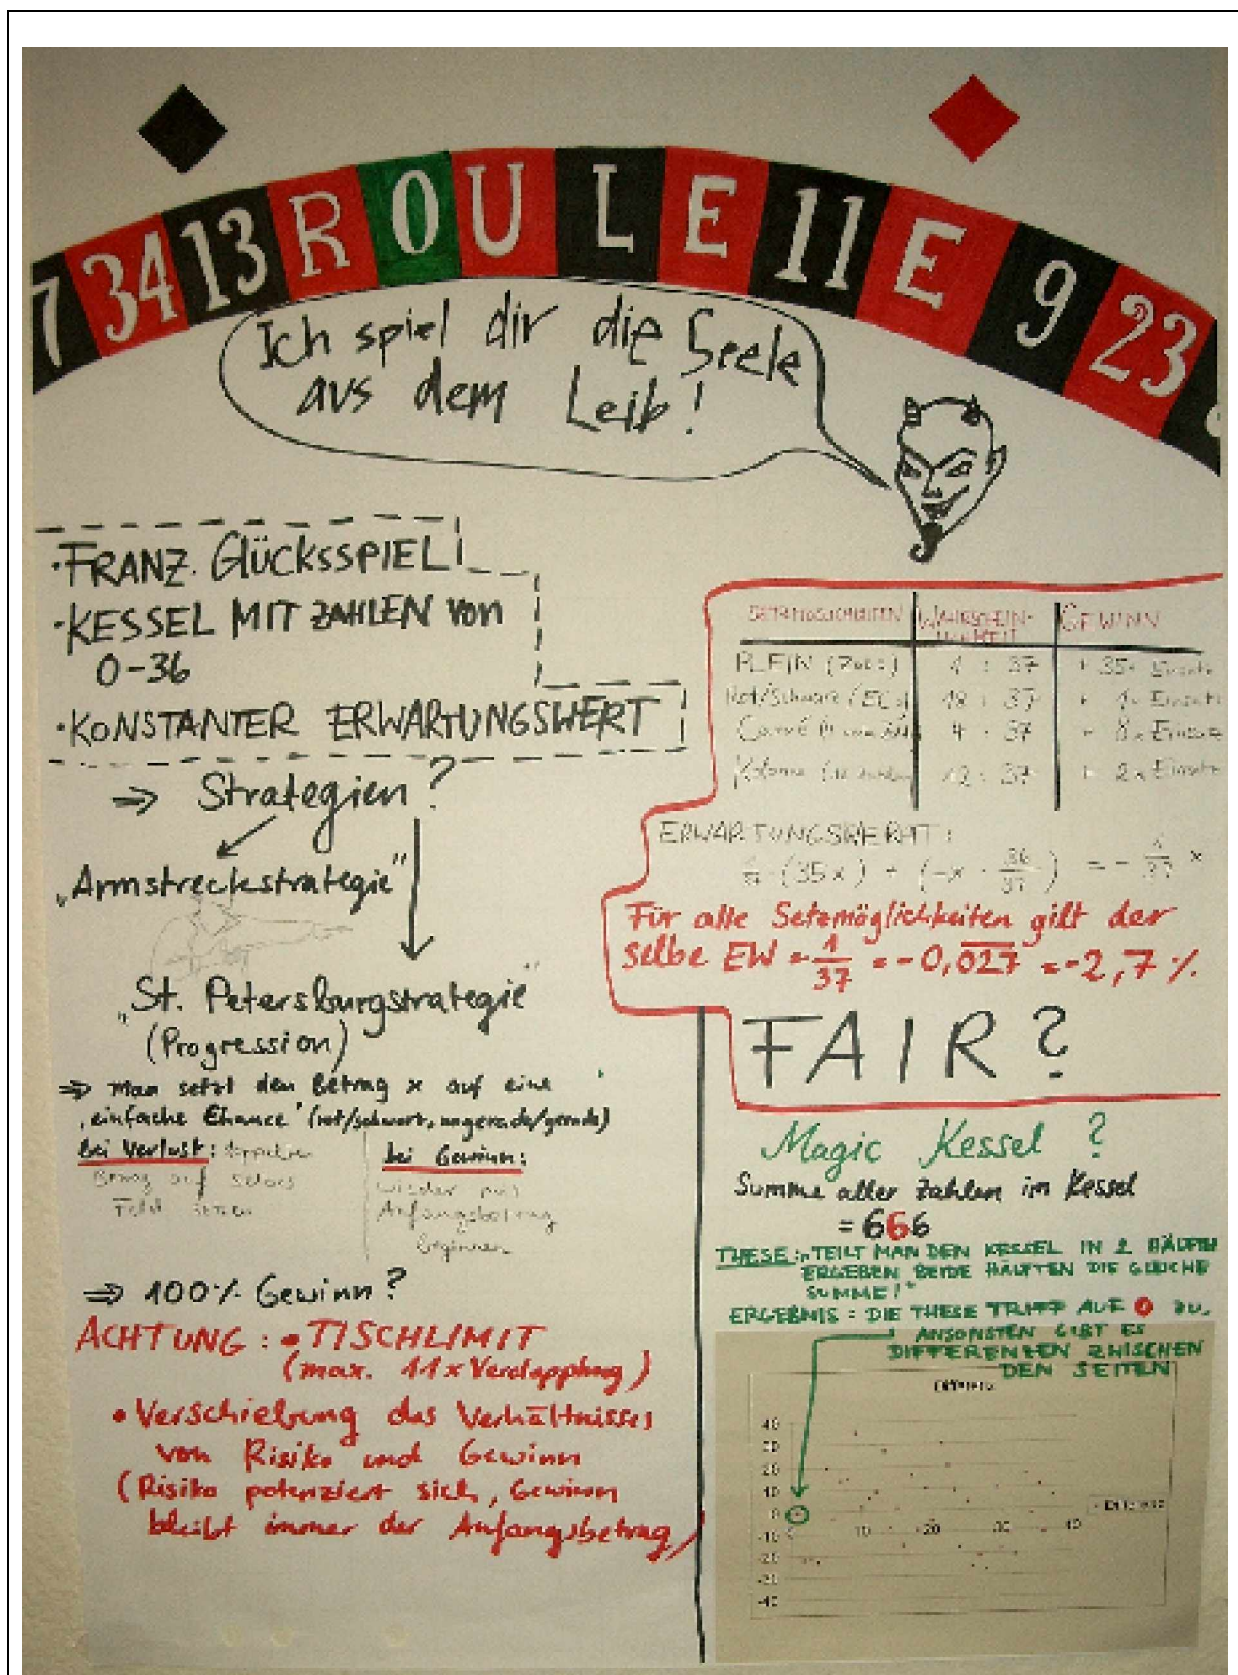 7 34 13 R O U L E 11 E 9 23
Ich spiel dir die Seele
aus dem Leib!
·FRANZ. GlücksspIEL
·KESSEL MIT ZAHLEN von
0-36
·KONSTANTER ERWARTUNGSWERT
⇒ Strategien?
„Armstreckstrategie"
„St. Petersburgstrategie"
(Progression)
⇒ Man setzt den Betrag x auf eine
„einfache Chance" (rot/schwarz, ungerade/gerade)
bei Verlust:
Betrag auf selbes
Feld setzen
bei Gewinn:
wieder mit
Anfangsbetrag
beginnen
⇒ 100% Gewinn?
ACHTUNG: • TISCHLIMIT
(max. 11x Verdopplung)
• Verschiebung des Verhältnisses
von Risiko und Gewinn
(Risiko potenziert sich, Gewinn
bleibt immer der Anfangsbetrag)
SETZMÖGLICHKEITEN WAHRSCHEIN-
LICHKEIT GEWINN
PLEIN 1 : 37 + 35x Einsatz
Rot/Schwarz (EC) 18 : 37 + 1x Einsatz
Carré 4 : 37 + 8x Einsatz
Kolonne (12 Zahlen) 12 : 37 + 2x Einsatz
ERWARTUNGSWERT:
1/37 · (35x) + (-x · 36/37) = - 1/37 x
Für alle Setzmöglichkeiten gilt der
selbe EW = - 1/37 = -0,027 = -2,7%
FAIR?
Magic Kessel?
Summe aller Zahlen im Kessel
= 666
THESE: „TEILT MAN DEN KESSEL IN 2 HÄLFTEN
ERGEBEN BEIDE HÄLFTEN DIE GLEICHE
SUMME!"
ERGEBNIS: DIE THESE TRIFF AUF 0 ZU.
ANSONSTEN GIBT ES
DIFFERENZEN ZWISCHEN
DEN SEITEN
Differenz
40
30
20
10
0
-10
-20
-30
-40
0 10 20 30 40
Differenz